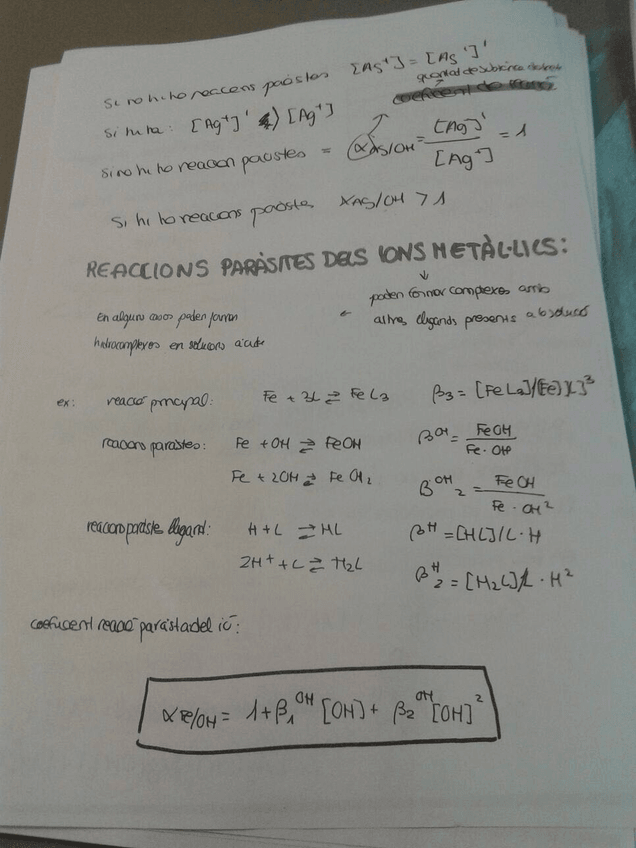 si no hi ha reaccions paràsites [Ag⁺] = [Ag⁺]'
quantitat de substància
coeficient de
si hi ha: [Ag⁺]' ≠ [Ag⁺]
si no hi ha reaccion paràsites = αAg/OH = [Ag]'/[Ag⁺] = 1
si hi ha reacions paràsites αAg/OH > 1
REACCIONS PARÀSITES DELS IONS METÀL·LICS:
↓
poden formar complexes amb
altres lligands presents a la solució
←
En alguns casos poden formar
hidrocomplexos en solucions
ex: reacció principal: Fe + 3L ⇌ FeL₃ β₃ = [FeL₃]/[Fe][L]³
reaccions paràsites: Fe + OH ⇌ FeOH βᴼᴴ = FeOH/Fe·OH
Fe + 2OH ⇌ FeOH₂ βᴼᴴ₂ = FeOH/Fe·OH²
reaccions paràsites lligand: H + L ⇌ HL βᴴ = [HL]/L·H
2H⁺ + L ⇌ H₂L βᴴ₂ = [H₂L]/L·H²
coeficient reacció paràsita del ió:
αFe/OH = 1 + β₁ᴼᴴ [OH] + β₂ᴼᴴ [OH]²